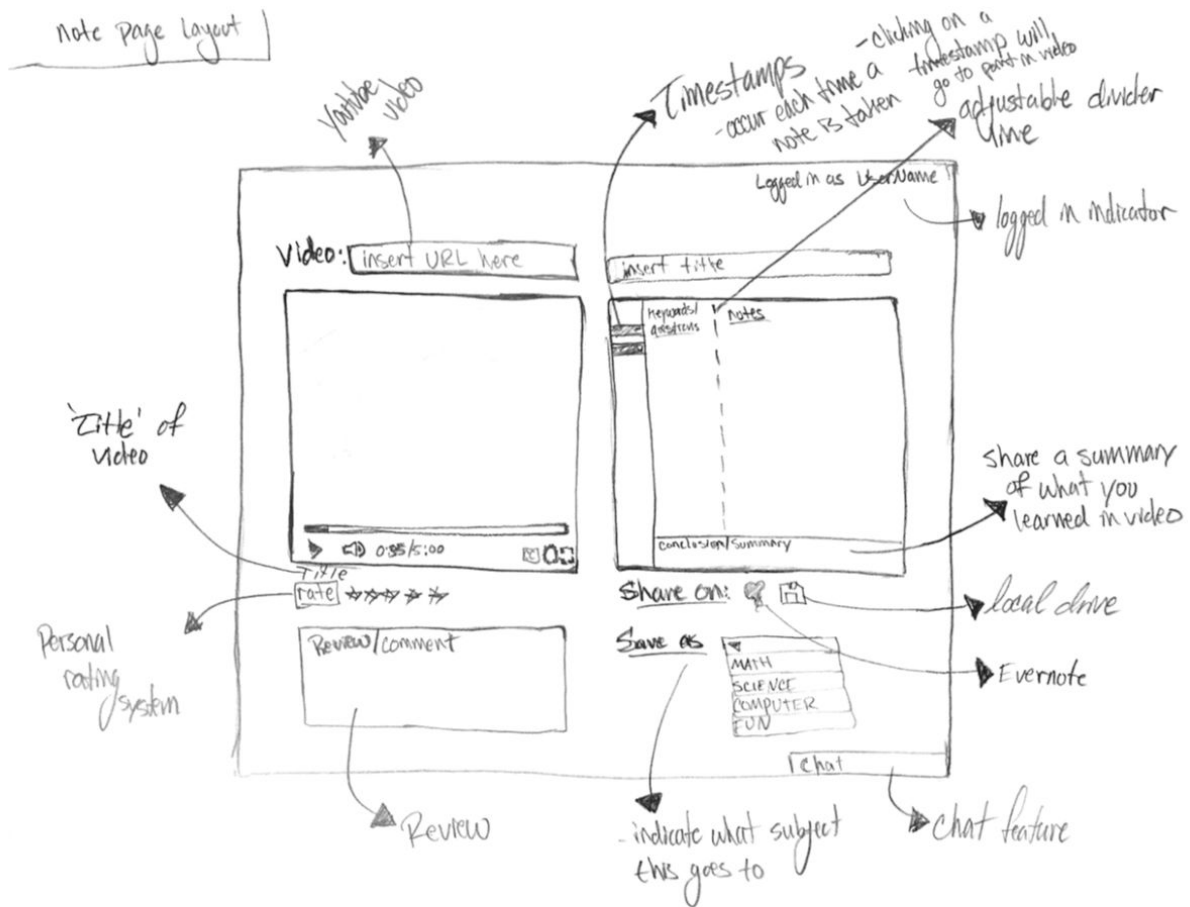 note page layout
Youtube
video
Timestamps
-occur each time a
note is taken
-clicking on a
timestamp will
go to point in video
adjustable divider
line
Logged in as UserName
logged in indicator
Video:
insert URL here
insert title
keywords/
questions
notes
'Title' of
video
0:35/5:00
Title
rate
conclusion/summary
share a summary
of what you
learned in video
Share on:
local drive
Personal
rating
system
Review/comment
Save as
MATH
SCIENCE
COMPUTER
FUN
Evernote
Chat
Review
-indicate what subject
this goes to
chat feature